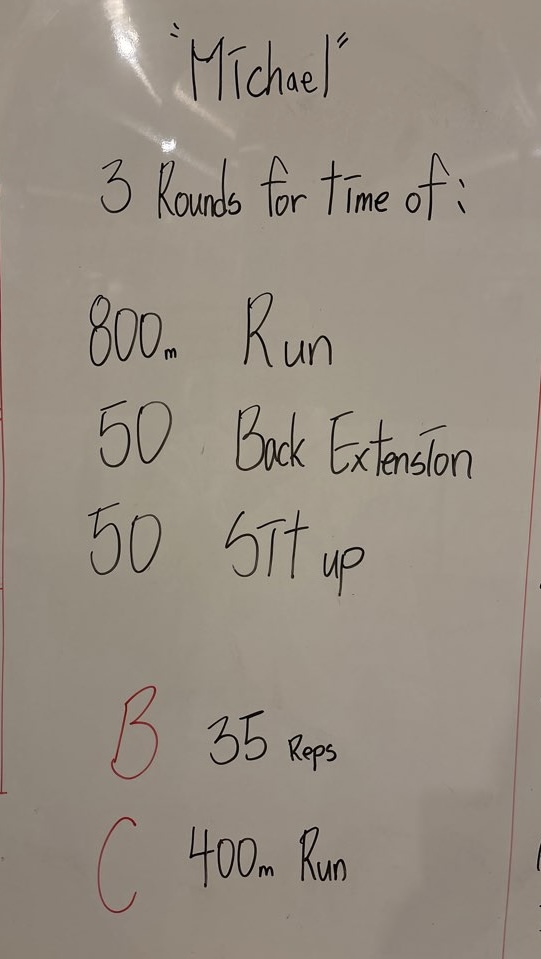 "Michael"
3 Rounds for time of:
800m Run
50 Back Extension
50 Sit up
B 35 Reps
C 400m Run